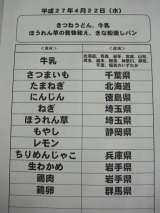 平成27年4月22日(水)
きつねうどん、牛乳
ほうれん草の胡麻和え、きな粉蒸しパン
牛乳
さつまいも 千葉県
たまねぎ 北海道
にんじん 徳島県
ねぎ 埼玉県
ほうれん草 埼玉県
もやし 静岡県
レモン
ちりめんじゃこ 兵庫県
生わかめ 岩手県
鶏肉 岩手県
鶏卵 群馬県